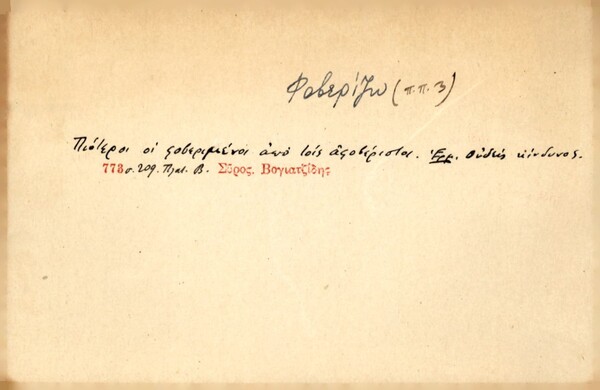 Φοβερίζω (π.π. 3)
Πιότεροι οι φοβεριμένοι από τοις αφοβέριστοι. Ἑρμ. Οὐδείς κίνδυνος.
773 σ. 209. Πλατ. Β. Σῦρος, Βογιατζίδης